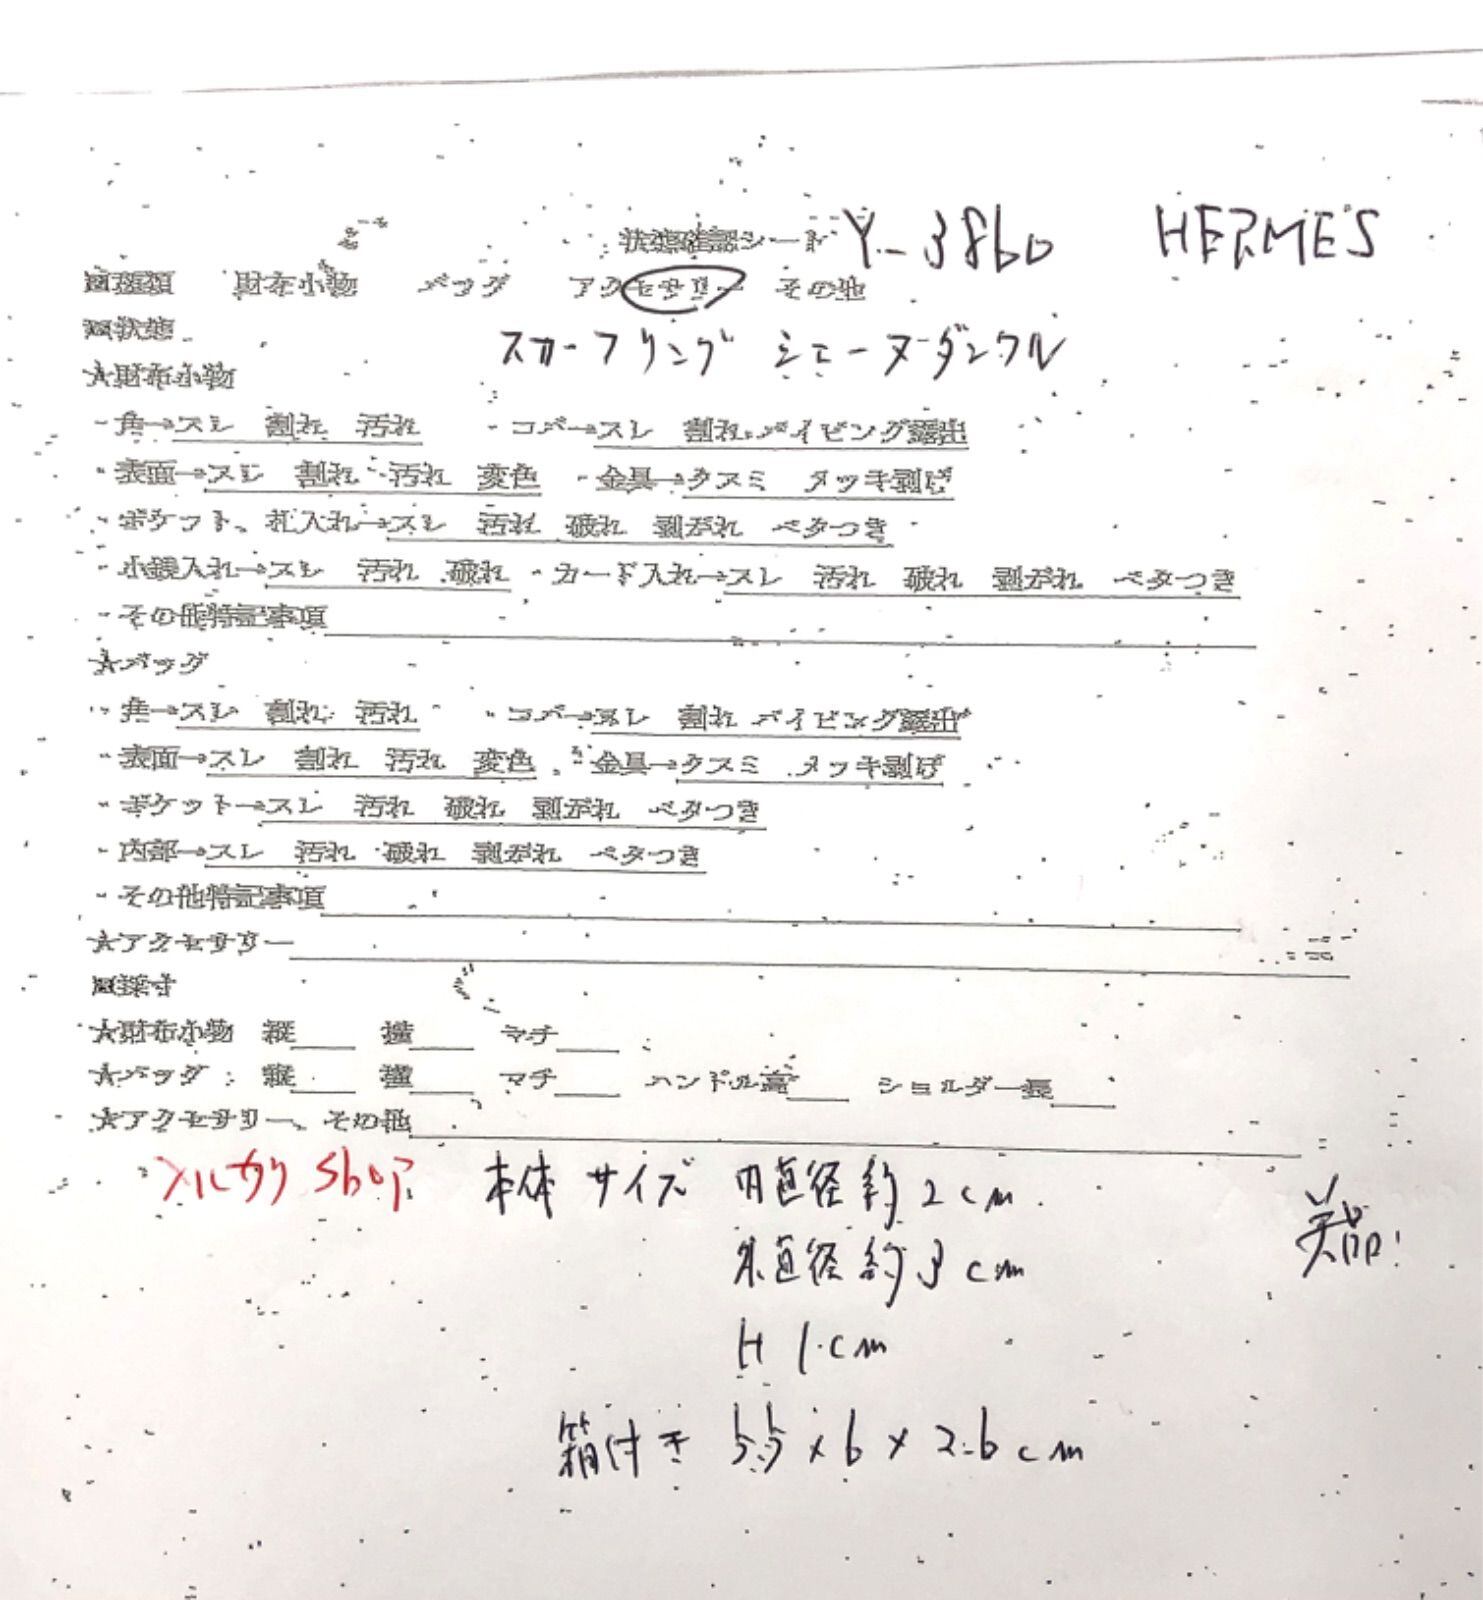 状態確認シート Y-3860 HERMES
■種類 財布小物 バッグ アクセサリー その他
■状態
スカーフリング シェーヌダンクル
★財布小物
・角→スレ 割れ 汚れ ・コバ→スレ 割れ パイピング露出
・表面→スレ 割れ 汚れ 変色 ・金具→クスミ メッキ剥げ
・ポケット、札入れ→スレ 汚れ 破れ 剥がれ ベタつき
・小銭入れ→スレ 汚れ 破れ ・カード入れ→スレ 汚れ 破れ 剥がれ ベタつき
・その他特記事項
★バッグ
・角→スレ 割れ 汚れ ・コバ→スレ 割れ パイピング露出
・表面→スレ 割れ 汚れ 変色 ・金具→クスミ メッキ剥げ
・ポケット→スレ 汚れ 破れ 剥がれ ベタつき
・内部→スレ 汚れ 破れ 剥がれ ベタつき
・その他特記事項
★アクセサリー
■採寸
★財布小物 縦 横 マチ
★バッグ 縦 横 マチ ハンドル高 ショルダー長
★アクセサリー、その他
メルカリ Shop 本体サイズ 内直径約2cm
外直径約3cm
美品!
H 1cm
箱付き 5.5×6×2.6cm